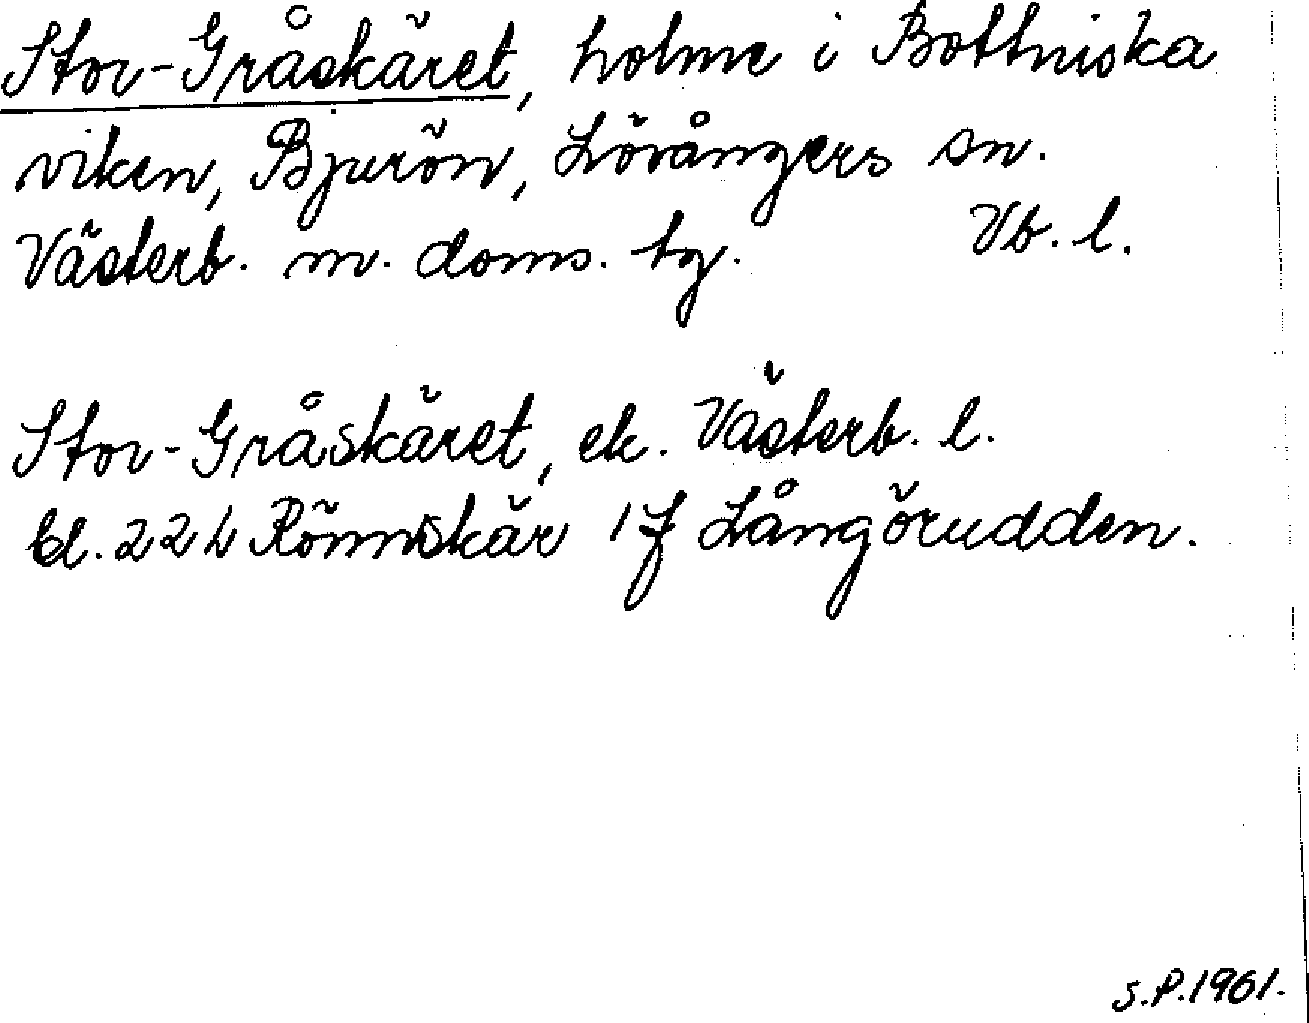 Stor-Gråskäret, holme i Bottniska
viken, Bjurön, Lövångers sn.
Västerb. m. doms. tg. Vb. l.
Stor-Gråskäret, ek. Västerb. l.
bl. 22 L Rönnskär 1f Långörudden.
S.P. 1961.